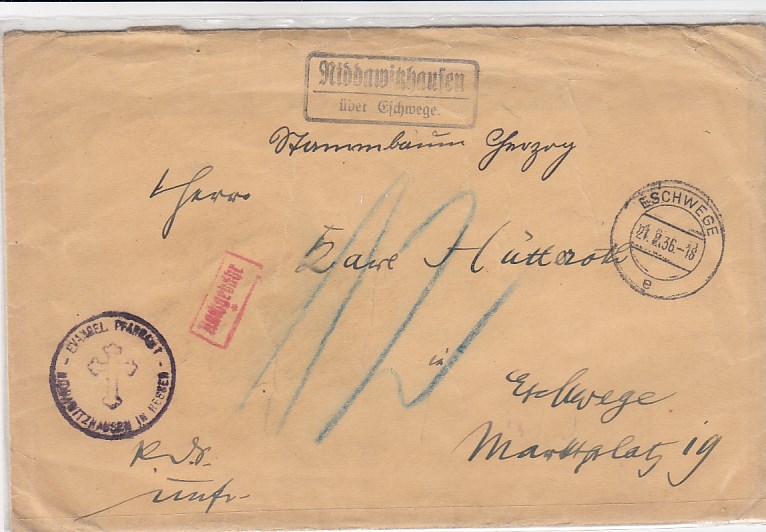 Niddawitzhausen
über Eschwege.
Stammbaum Herzog
Herrn
ESCHWEGE
21.2.36-18
e
Karl Hütteroth
Nachgebühr
EVANGEL. PFARRAMT
NIDDAWITZHAUSEN IN HESSEN
in
Eschwege
Marktplatz 19